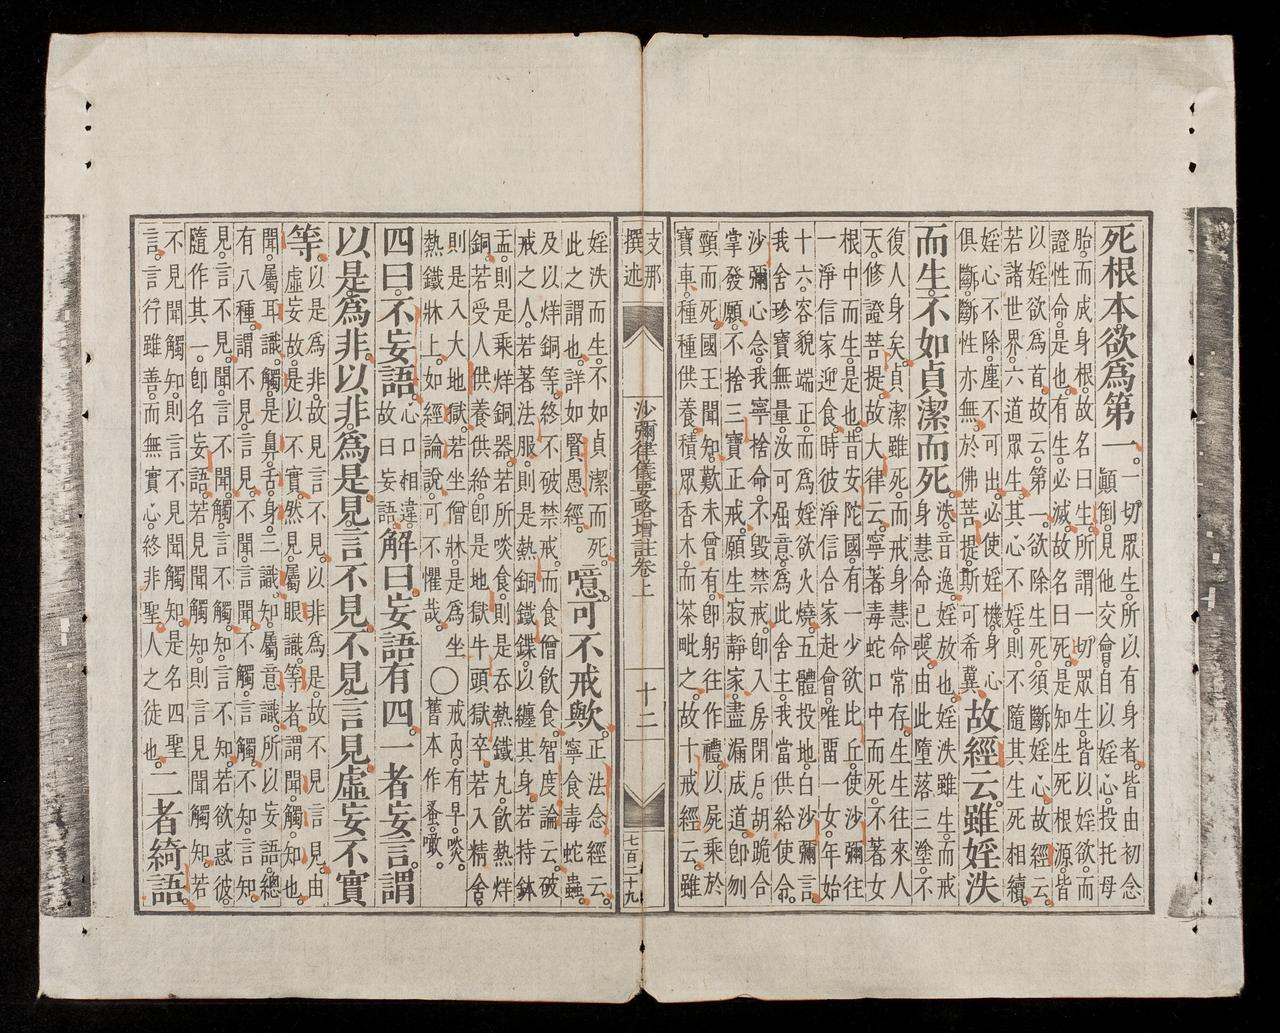 死根本欲為第一。一切眾生。所以有身者。皆由初念
顛倒。見他交會。自以婬心投托母
胎。而成身根。故名曰生。所謂一切眾生。皆以婬欲。而
證性命。是也。有生必滅。故名曰死。是知生死根源。皆
以婬欲為首。故云。第一。欲除生死。須斷婬心。故經云。
若諸世界。六道眾生。其心不婬。則不隨其生死相續。
婬心不除。塵不可出。必使婬機。身心
俱斷。斷性亦無。於佛菩提。斯可希冀。故經云。雖婬泆
而生。不如貞潔而死。泆音逸。婬放也。婬泆雖生。而戒
身慧命已喪。由此墮落三塗。不
復人身矣。貞潔雖死。而戒身慧命常存。生生往來人
天。修證菩提。故大律云。寧著毒蛇口中而死。不著女
根中而生。是也。昔安陀國。有一少欲比丘。使沙彌往
一淨信家迎食。時彼淨信合家赴會。唯畱一女。年始
十六。容貌端正。而為婬欲火燒。五體投地。白沙彌言。
我舍珍寶無量。汝可屈意。為此舍主。我當供給使令。
沙彌心念。我寧捨命。不毀禁戒。即入房閉戶。胡跪合
掌發願。不捨三寶正戒。願生寂靜家。盡漏成道。即刎
頸而死。國王聞知。歎未曾有。即躬往作禮。以屍乘於
寶車。種種供養。積眾香木。而茶毗之。故十戒經云。雖
支那
撰述
沙彌律儀要略增註卷上
十二
七百二十九
婬泆而生。不如貞潔而死。
此之謂也。詳如賢愚經。噫。可不戒歟。正法念經云。
寧食毒蛇蟲。
及以烊銅等。終不破禁戒。而食僧飲食。智度論云。破
戒之人。若著法服。則是熱銅鐵鍱。以纏其身。若持鉢
盂。則是乘烊銅器。若所啖食。則是吞熱鐵丸。飲熱烊
銅。若受人供養供給。即是地獄牛頭獄卒。若入精舍。
則是入大地獄。若坐僧牀。是為坐
熱鐵牀上。如經論說。可不懼哉。〇戒內。有早啖。
舊本作蚤噉。
四曰。不妄語。心口相違。
故曰妄語。解曰。妄語有四。一者妄言。謂
以是為非。以非為是。見言不見。不見言見。虛妄不實
等。以是為非。故見言不見。以非為是。故不見言見。由
虛妄故。是以不實。然見屬眼識。等者。謂聞觸知也。
聞。屬耳識。觸。是鼻。舌。身。三識。知。屬意識。所以妄語。總
有八種。謂不見言見。不聞言聞。不觸言觸。不知言知。
見言不見。聞言不聞。觸言不觸。知言不知。若欲惑彼。
隨作其一。即名妄語。若見聞觸知。則言見聞觸知。若
不見聞觸知。則言不見聞觸知。是名四聖
言。言行雖善。而無實心。終非聖人之徒也。二者綺語。